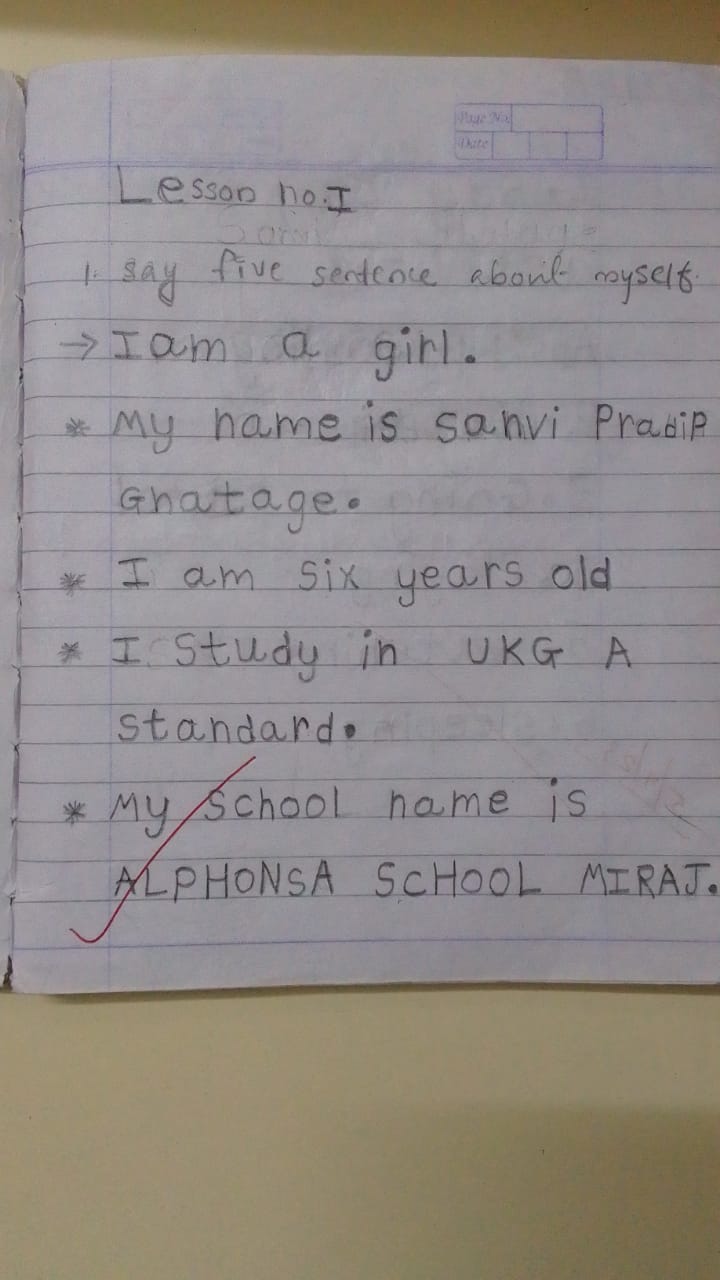 Page No.
Date
Lesson no. I
1. say five sentence about myself.
→ I am a girl.
* My name is sanvi Pradip
Ghatage.
* I am six years old
* I study in UKG A
standard.
* My school name is
ALPHONSA SCHOOL MIRAJ.